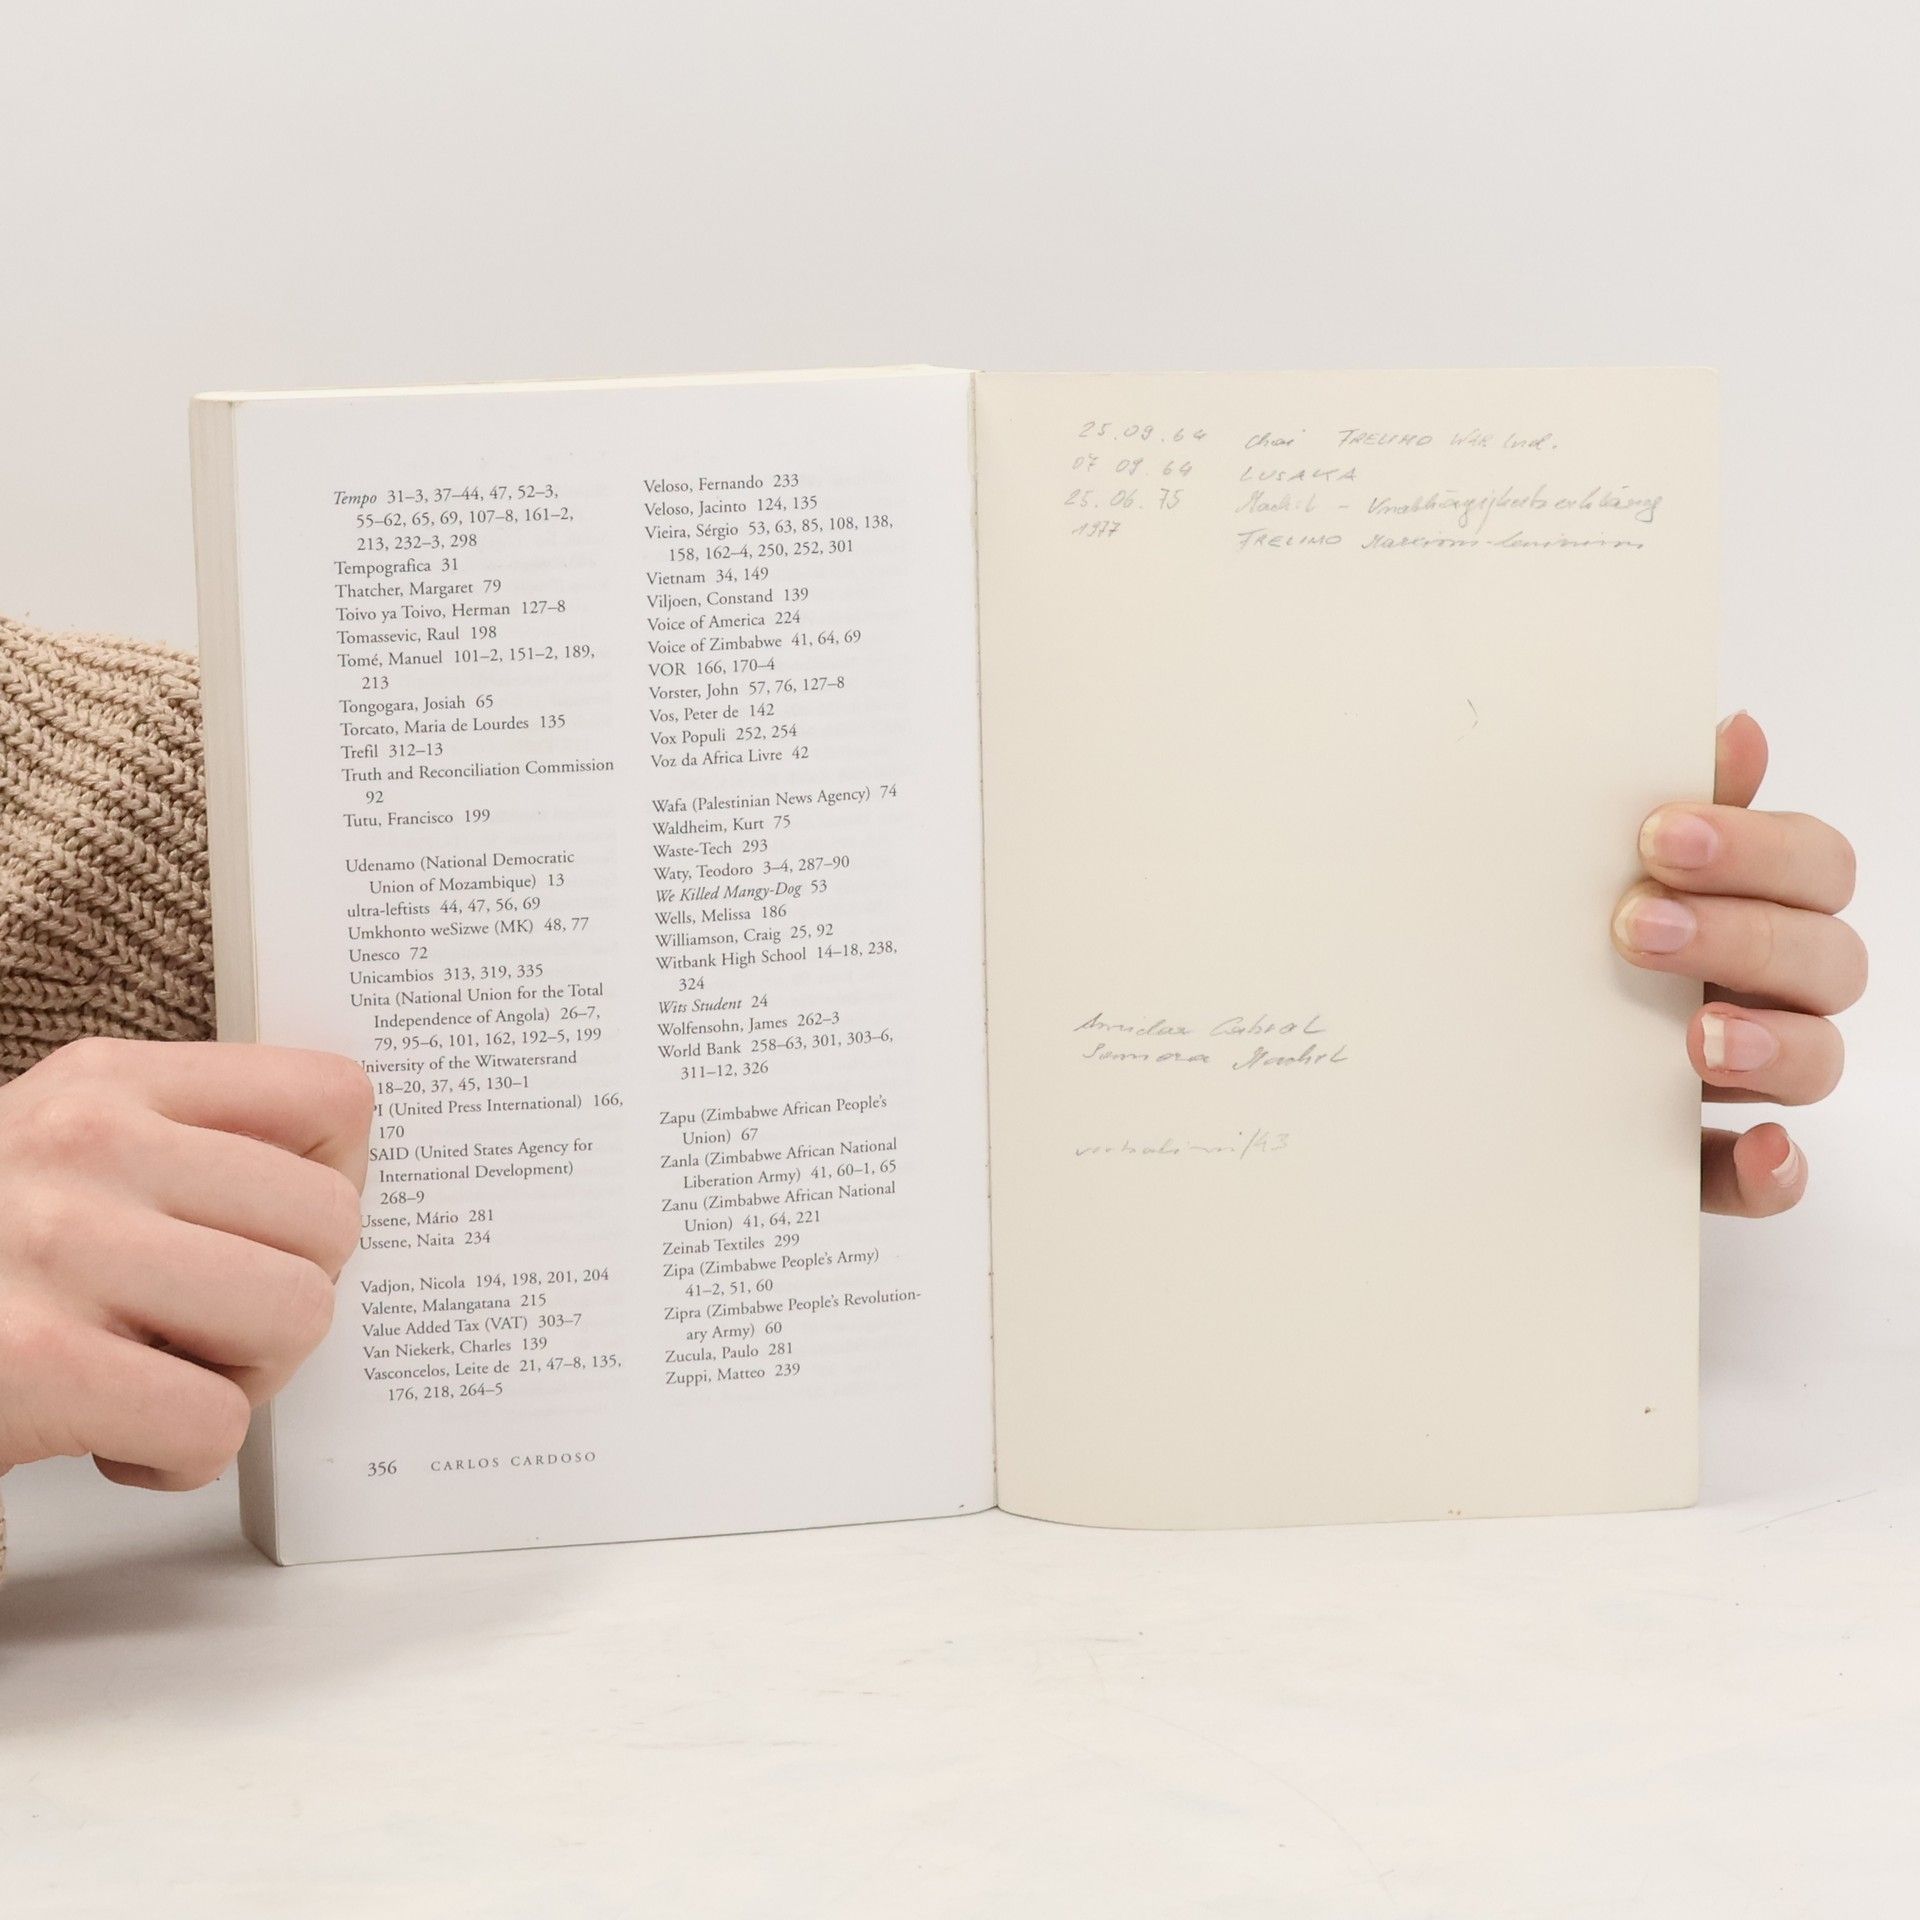 Tempo 31–3, 37–44, 47, 52–3,
55–62, 65, 69, 107–8, 161–2,
213, 232–3, 298
Tempografica 31
Thatcher, Margaret 79
Toivo ya Toivo, Herman 127–8
Tomassevic, Raul 198
Tomé, Manuel 101–2, 151–2, 189,
213
Tongogara, Josiah 65
Torcato, Maria de Lourdes 135
Trefil 312–13
Truth and Reconciliation Commission
92
Tutu, Francisco 199
Udenamo (National Democratic
Union of Mozambique) 13
ultra-leftists 44, 47, 56, 69
Umkhonto weSizwe (MK) 48, 77
Unesco 72
Unicambios 313, 319, 335
Unita (National Union for the Total
Independence of Angola) 26–7,
79, 95–6, 101, 162, 192–5, 199
niversity of the Witwatersrand
18–20, 37, 45, 130–1
PI (United Press International) 166,
170
SAID (United States Agency for
International Development)
268–9
Ussene, Mário 281
Ussene, Naita 234
Vadjon, Nicola 194, 198, 201, 204
Valente, Malangatana 215
Value Added Tax (VAT) 303–7
Van Niekerk, Charles 139
Vasconcelos, Leite de 21, 47–8, 135,
176, 218, 264–5
Veloso, Fernando 233
Veloso, Jacinto 124, 135
Vieira, Sérgio 53, 63, 85, 108, 138,
158, 162–4, 250, 252, 301
Vietnam 34, 149
Viljoen, Constand 139
Voice of America 224
Voice of Zimbabwe 41, 64, 69
VOR 166, 170–4
Vorster, John 57, 76, 127–8
Vos, Peter de 142
Vox Populi 252, 254
Voz da Africa Livre 42
Wafa (Palestinian News Agency) 74
Waldheim, Kurt 75
Waste-Tech 293
Waty, Teodoro 3–4, 287–90
We Killed Mangy-Dog 53
Wells, Melissa 186
Williamson, Craig 25, 92
Witbank High School 14–18, 238,
324
Wits Student 24
Wolfensohn, James 262–3
World Bank 258–63, 301, 303–6,
311–12, 326
Zapu (Zimbabwe African People's
Union) 67
Zanla (Zimbabwe African National
Liberation Army) 41, 60–1, 65
Zanu (Zimbabwe African National
Union) 41, 64, 221
Zeinab Textiles 299
Zipa (Zimbabwe People's Army)
41–2, 51, 60
Zipra (Zimbabwe People's Revolution-
ary Army) 60
Zucula, Paulo 281
Zuppi, Matteo 239
356 CARLOS CARDOSO
25.09.64 Chai FRELIMO WAR
07 09.64 LUSAKA
25.06.75 Machel – Unabhängigkeitserklärung
1977 FRELIMO Marxism-leninism
Amidar Cabral
Samora Machel